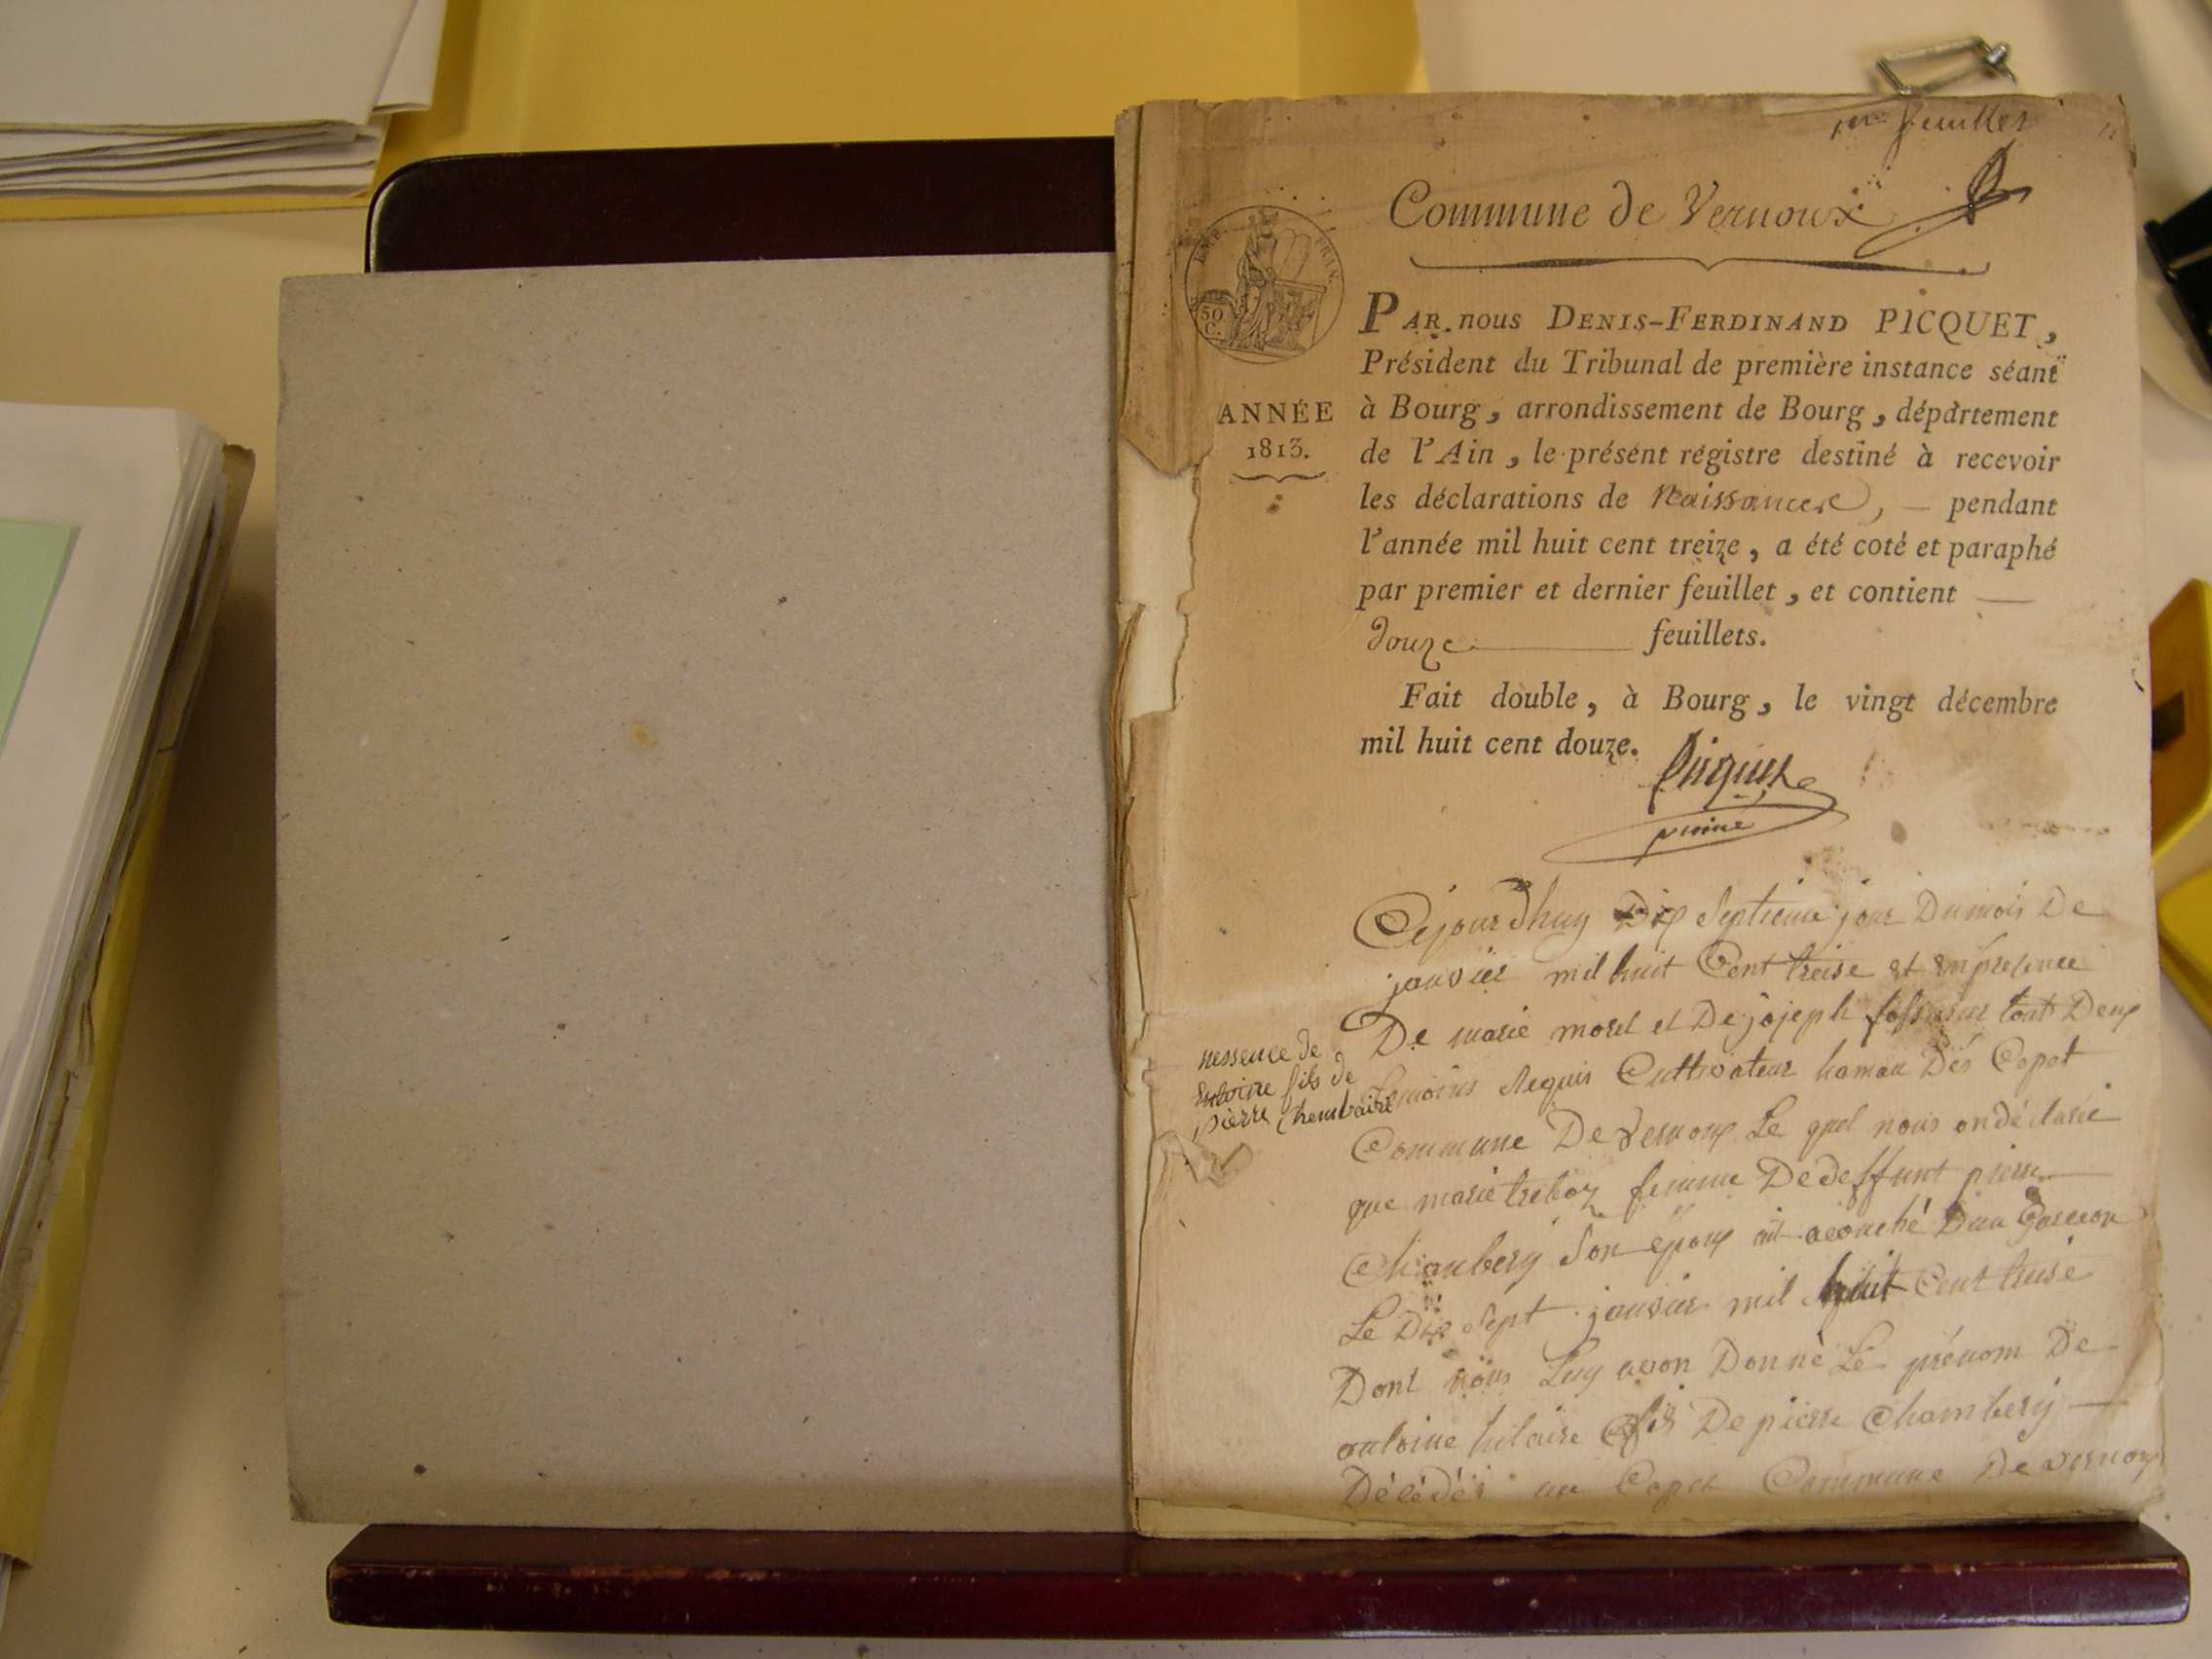 1er feuillet
Commune de Vernoux
EMP. FRAN.
50
C.
ANNÉE
1813.
PAR nous DENIS-FERDINAND PICQUET,
Président du Tribunal de première instance séant
à Bourg, arrondissement de Bourg, département
de l'Ain, le présent régistre destiné à recevoir
les déclarations de Naissances, — pendant
l'année mil huit cent treize, a été coté et paraphé
par premier et dernier feuillet, et contient —
douze feuillets.
Fait double, à Bourg, le vingt décembre
mil huit cent douze.
Picquet
nessence de
Entoine fils de
pierre Chembairi
Cejourdhuy Dix Septieme jour Dumois De
janvier mil huit Cent treise et En presence
De marie morel et De jojeph tout Deup
temoins Requis Cultivateur hamau Dés Copet
Commune De Vernoup Le quel nous on déclarée
que marie treboz femme De deffunt pierre
Chambery Son époup ait acouché Dun Garccon
Le Dix Sept janvier mil huit Cent treise
Dont nous Luy avon Donné Le prénom De
antoine hilaire fils De pierre Chambery —
Dècédés au Copet Commune De vernoup